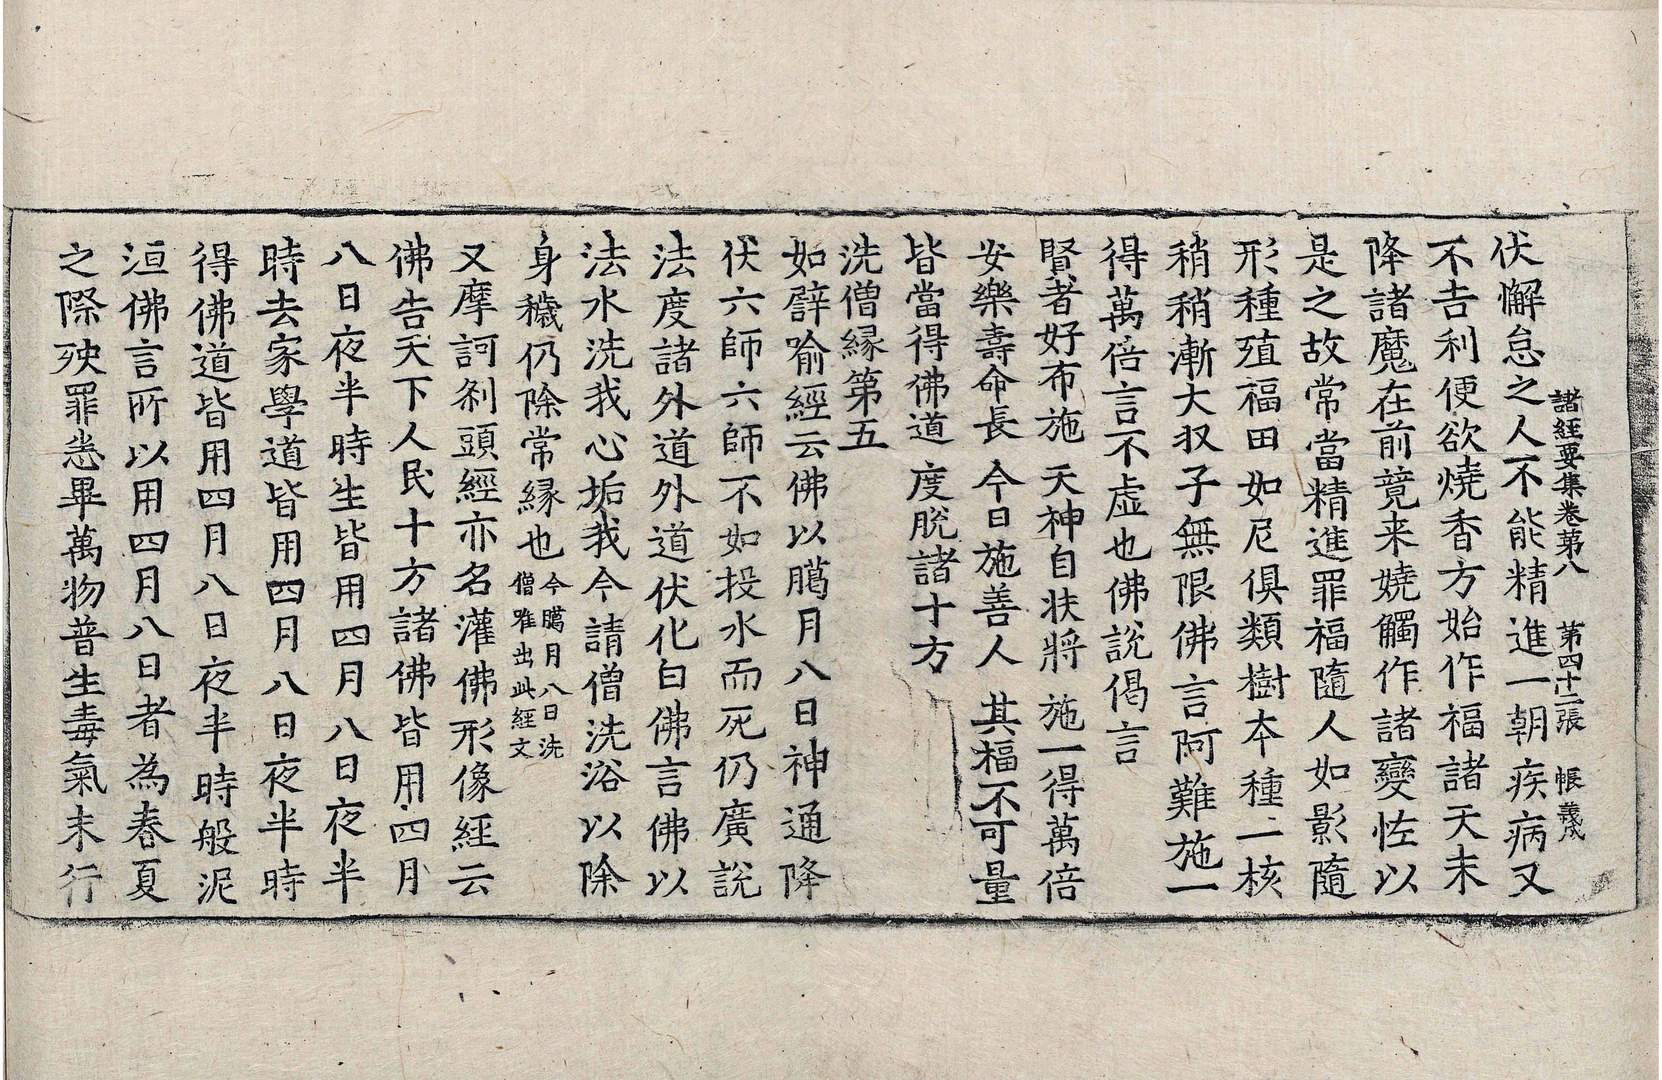 諸經要集卷第八 第四十二張 帳 義成
伏懈怠之人不能精進一朝疾病又
不吉利便欲燒香方始作福諸天未
降諸魔在前竟来嬈觸作諸變恠以
是之故常當精進罪福隨人如影隨
形種殖福田如尼俱類樹本種一核
稍稍漸大収子無限佛言阿難施一
得萬倍言不虛也佛說偈言
賢者好布施 天神自扶將 施一得萬倍
安樂壽命長 今日施善人 其福不可量
皆當得佛道 度脫諸十方
洗僧縁第五
如譬喻經云佛以臈月八日神通降
伏六師六師不如投水而死仍廣說
法度諸外道外道伏化白佛言佛以
法水洗我心垢我今請僧洗浴以除
身穢仍除常縁也 今臈月八日洗
僧唯出此經文
又摩訶剎頭經亦名灌佛形像經云
佛告天下人民十方諸佛皆用四月
八日夜半時生皆用四月八日夜半
時去家學道皆用四月八日夜半時
得佛道皆用四月八日夜半時般泥
洹佛言所以用四月八日者為春夏
之際殃罪悉畢萬物普生毒氣未行